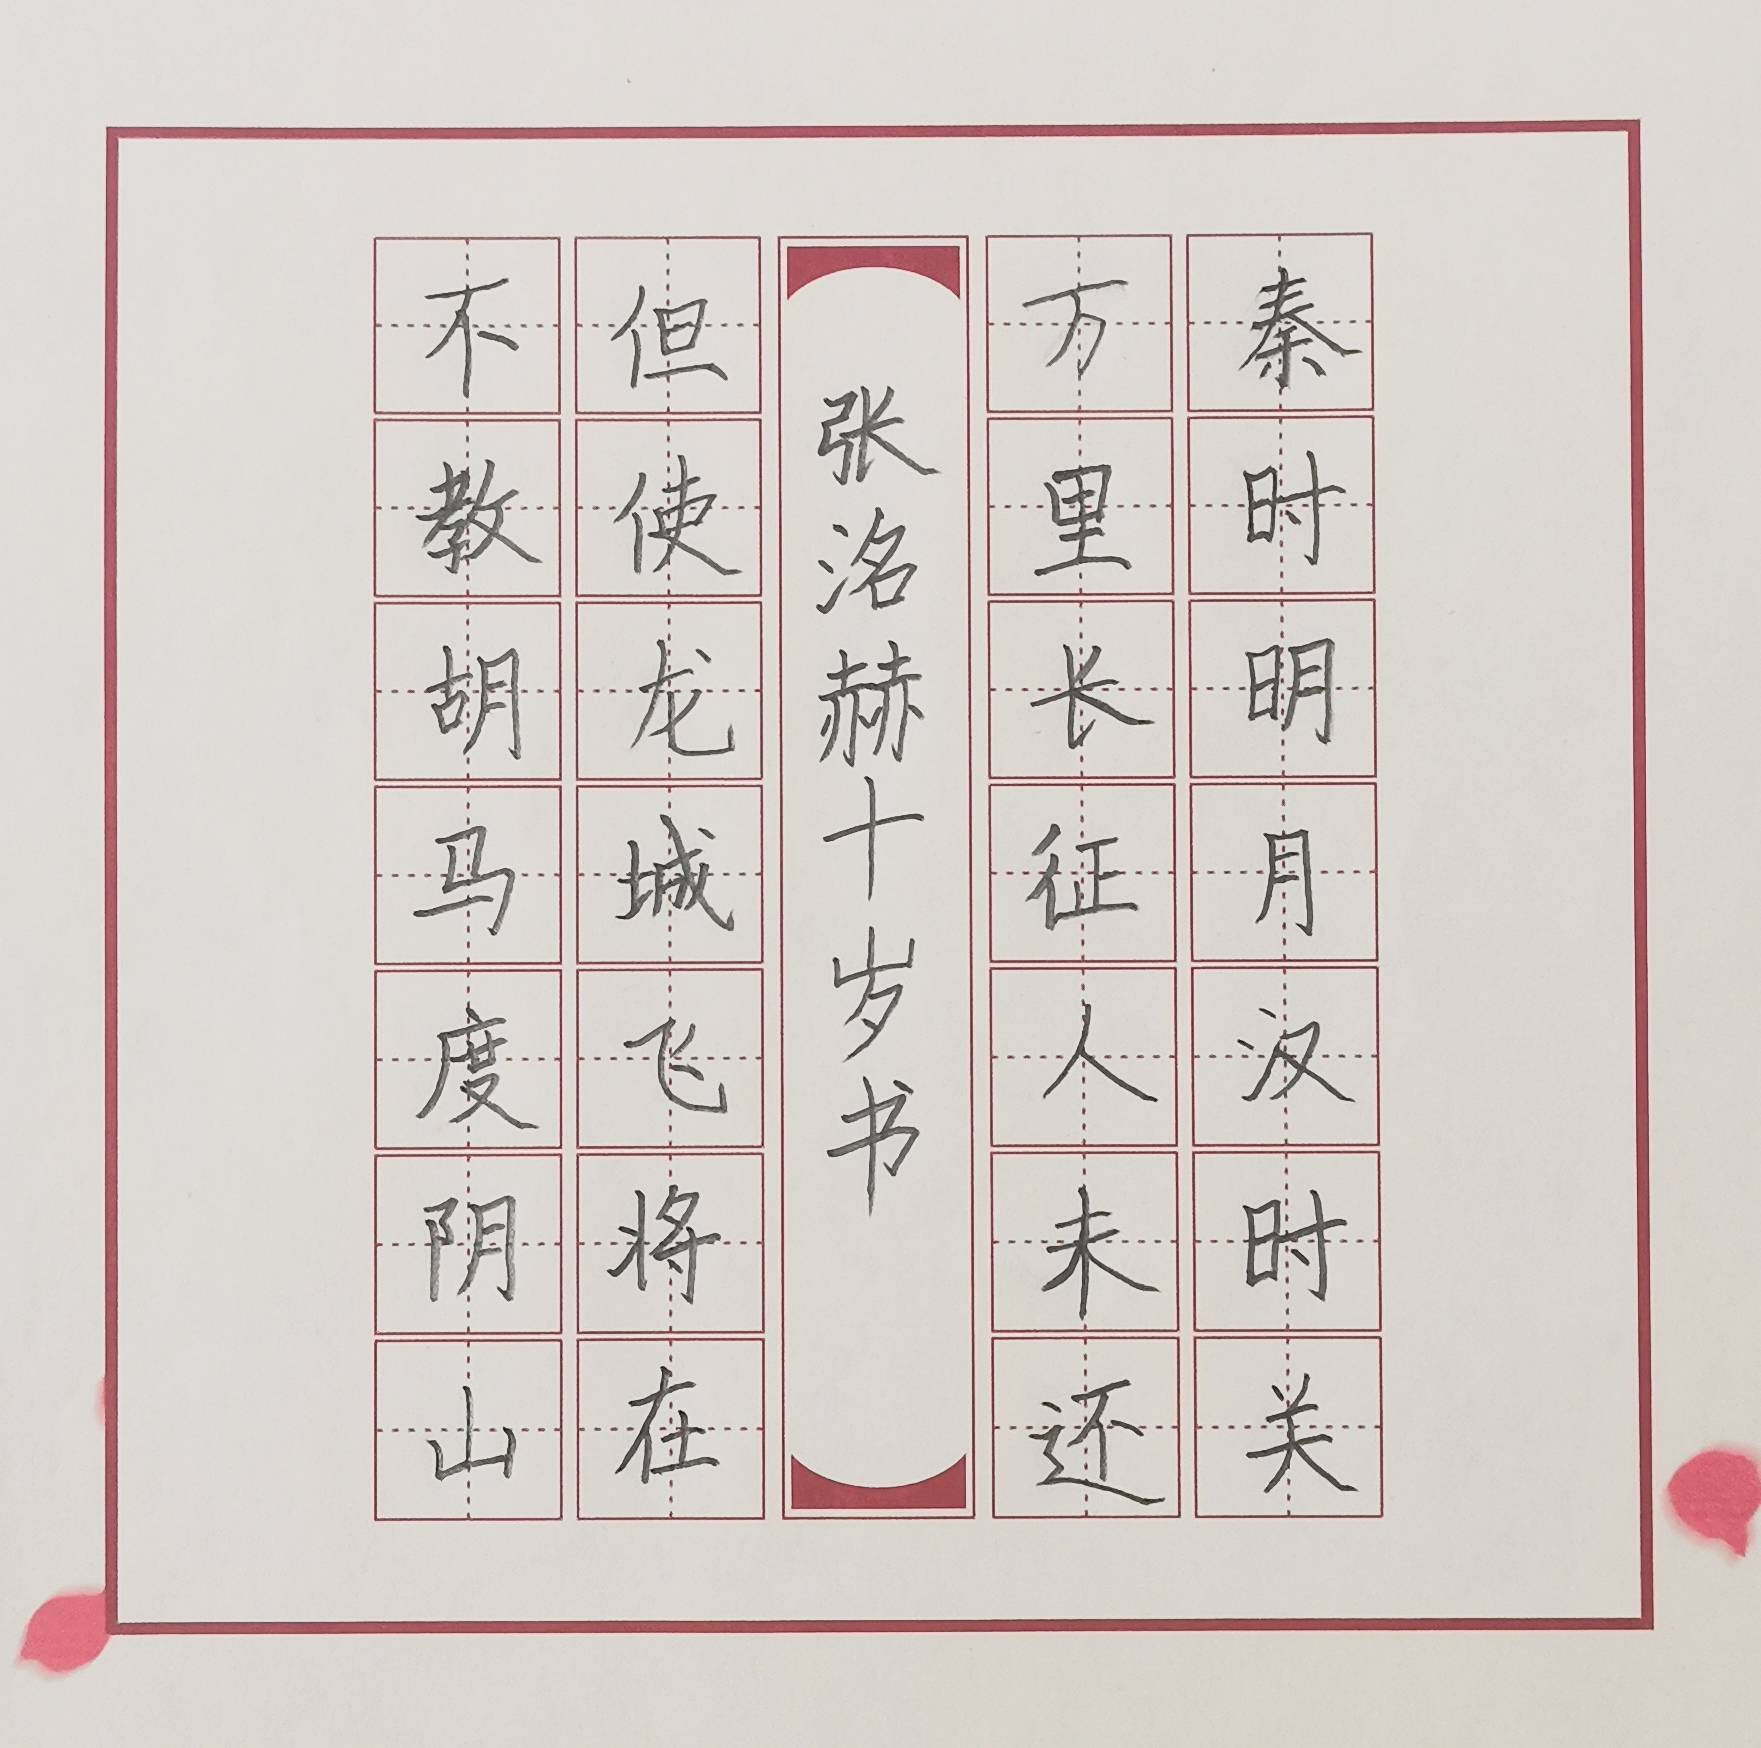 秦时明月汉时关
万里长征人未还
张洺赫十岁书
但使龙城飞将在
不教胡马度阴山